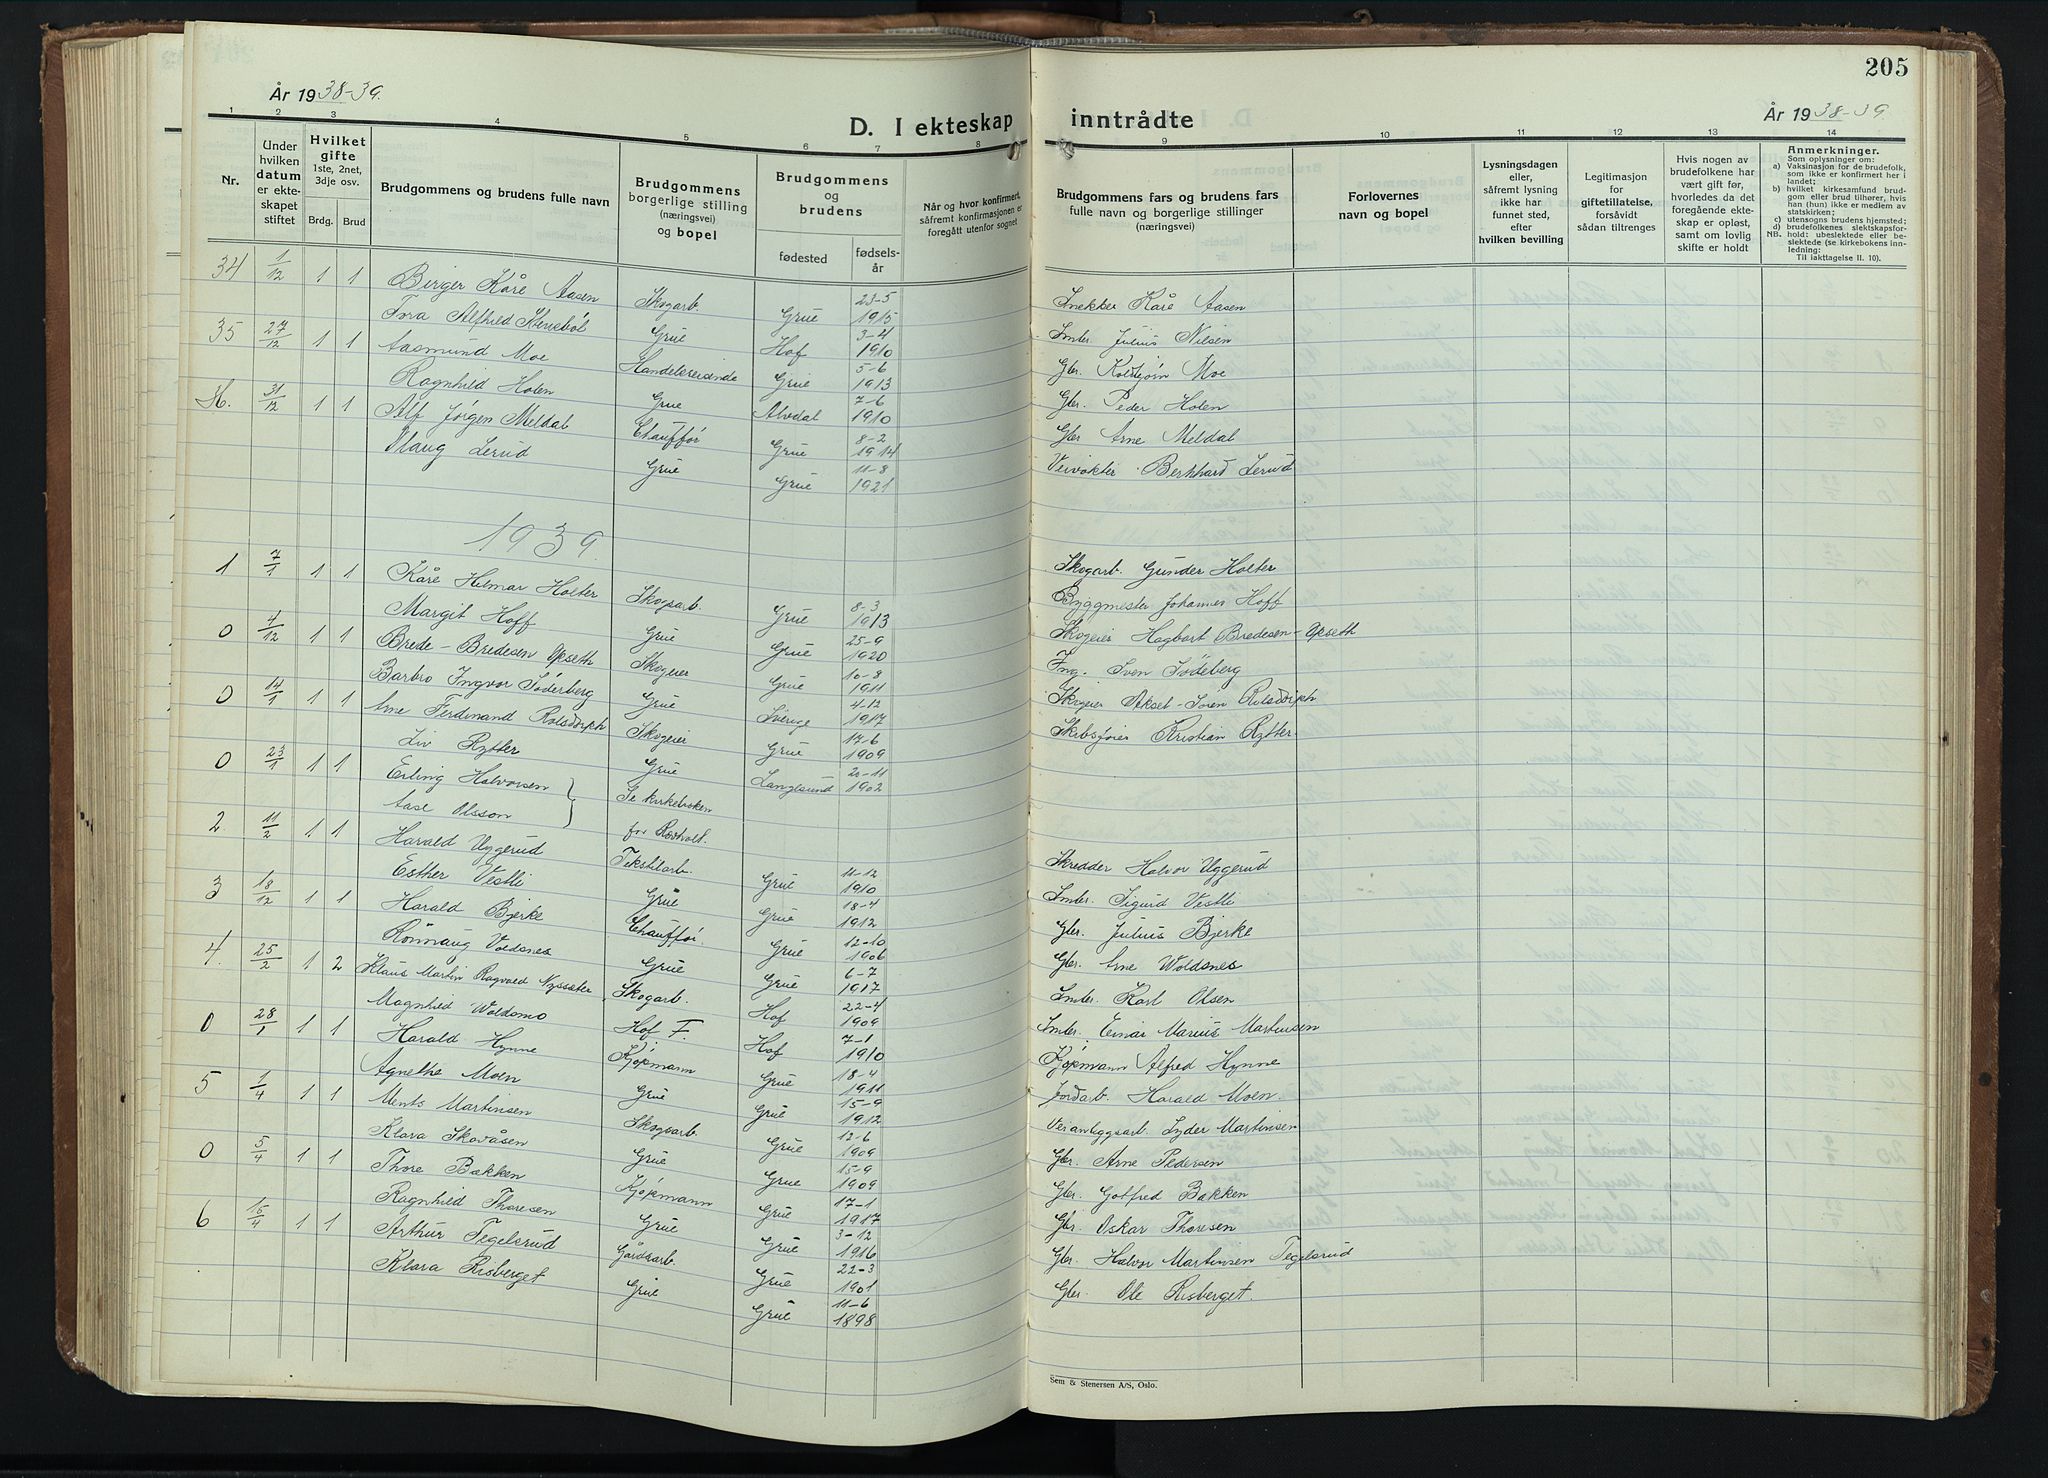 205
År 1938-39.
År 1938-39
D. I ekteskap inntrådte
1 2 3 4 5 6 7 8 9 10 11 12 13 14
Nr.
Under hvilken datum er ekteskapet stiftet
Hvilket gifte
1ste, 2net, 3dje osv.
Brdg. Brud
Brudgommens og brudens fulle navn
Brudgommens borgerlige stilling (næringsvei) og bopel
Brudgommens og brudens
fødested
fødselsår
Når og hvor konfirmert, såfremt konfirmasjonen er foregått utenfor sognet
Brudgommens fars og brudens fars fulle navn og borgerlige stillinger (næringsvei)
Forlovernes navn og bopel
Lysningsdagen eller, såfremt lysning ikke har funnet sted, efter hvilken bevilling
Legitimasjon for giftetillatelse, forsåvidt sådan tiltrenges
Hvis nogen av brudefolkene har vært gift før, hvorledes da det foregående ekteskap er opløst, samt om lovlig skifte er holdt
Anmerkninger.
Som oplysninger om:
a) Vaksinasjon for de brudefolk, som ikke er konfirmert her i landet;
b) hvilket kirkesamfund brudgom eller brud tilhører, hvis han (hun) ikke er medlem av statskirken;
c) utensogns brudens hjemsted;
d) brudefolkenes slektskapsforhold: ubeslektede eller beslektede (se kirkebokens innledning:
NB. Til iakttagelse II. 10).
34 1/12 1 1 Birger Kåre Aasen Skogarb. Grue 23-5 1915 Snekker Kåre Aasen
Tora Alfhild Stenebøl Grue Hof 3-4 1910 Smbr. Julius Nilsen
35 27/12 1 1 Aasmund Moe Handelsreisende Grue 5-6 1913 Gbr. Kolbjørn Moe
Ragnhild Holen Grue Alvdal 7-6 1910 Gbr. Peder Holen
36. 31/12 1 1 Alf Jørgen Meldal Chauffør Grue 8-2 1914 Gbr. Arne Meldal
Olaug Lerud Grue Grue 11-8 1921 Veivokter Bernhard Lerud
1939
1 7/1 1 1 Kåre Hilmar Holter Skogsarb. Grue 8-3 1913 Skogarb. Gunder Holter
Margit Hoff Grue Grue 25-9 1920 Byggmester Johannes Hoff
0 4/12 1 1 Brede-Bredesen Opseth Skogeier Grue 10-8 1911 Skogeier Hagbart Bredesen-Opseth
Barbro Ingvor Söderberg Grue Sverige 4-12 1917 Ing. Sven Södeberg
0 14/1 1 1 Arne Ferdinand Rolsdorph Skogeier Grue 17-6 1909 Skogeier Aksel-Soren Rolsdorph
Liv Rytter Grue Langesund 20-11 1902 Skibsfører Kristian Rytter.
0 23/1 1 1 Erling Halvorsen } Se kirkeboken
Aase Olsson for Rotvolt.
2. 11/2 1 1 Harald Uggerud Tekstilarb. Grue 11-12 1910 Skredder Halvor Uggerud
Esther Vestli Grue Grue 18-4 1912 Smbr. Sigurd Vestli
3 18/12 1 1 Harald Bjerke Chauffør. Grue 12-10 1906 Gbr. Julius Bjerke
Rønnaug Voldsnes Grue Grue 6-7 1917 Gbr. Arne Woldsnes
4. 25/2 1 2 Klaus Martin Ragvald Nyssæter Skogarb. Hof 22-4 1909 Smbr. Karl Olsen
Magnhild Woldsmo Hof F. Hof 7-1 1910 Smbr. Einar Marius Martinsen
0 28/1 1 1 Harald Hynne Kjøpmann Grue 18-4 1911 Kjøpmann Alfred Hynne
Agnethe Moen Grue Grue 15-9 1912 Jordarb. Harald Moen
5 1/4 1 1 Ments Martinsen Skogsarb. Grue 12-6 1909 Veianleggsarb. Syder Martinsen
Klara Skovåsen Grue Grue 15-9 1909 Gbr. Arne Pedersen
0 5/4 1 1 Thore Bakken Kjøpmann Grue 17-1 1917 Gbr. Gotfred Bakken
Ragnhild Thoresen Grue Grue 3-12 1916 Gbr. Oskar Thoresen
6 15/4 1 1 Arthur Tegelsrud Gårdsarb. Grue 22-3 1901 Gbr. Halvor Martinsen Tegelsrud
Klara Risberget Grue Grue 11-6 1898 Gbr. Ole Risberget.
Sem & Stenersen A/S, Oslo.